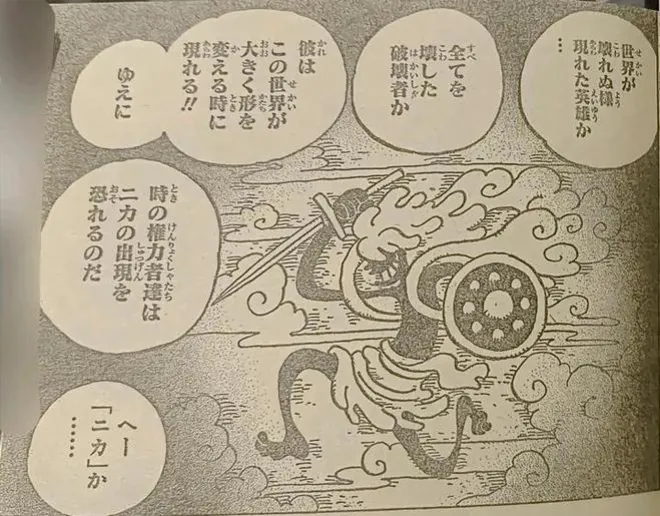 世界が
壊れぬ様
現れた英雄か
…
全てを
壊した
破壊者か
彼は
この世界が
大きく形を
変える時に
現れる!!
ゆえに
時の権力者達は
ニカの出現を
恐れるのだ
へー
「ニカ」か
……